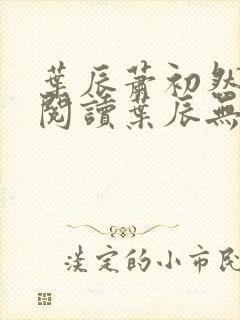 葉辰蕭初然
閱讀葉辰無
淡定的小市民